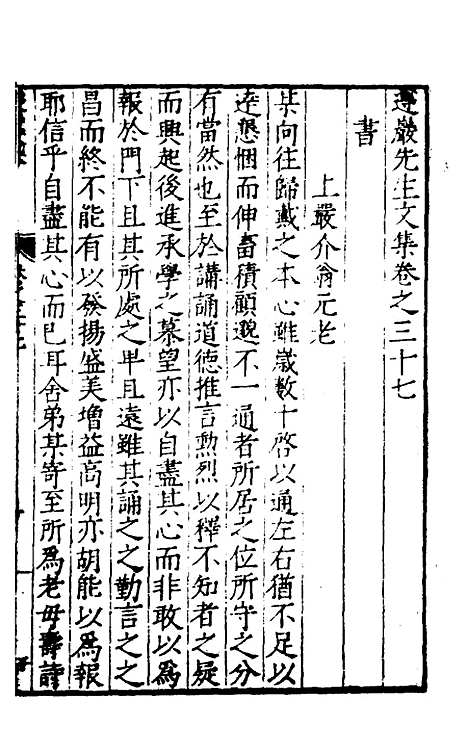 遵巖先生文集卷之三十七
書
上嚴介翁元老
某向往歸戴之本心雖歲數十啓以通左右猶不足以
達懇悃而伸畜積顧邈不一通者所居之位所守之分
有當然也至於講誦道德推言勳烈以釋不知者之疑
而興起後進承學之慕望亦以自盡其心而非敢以為
報於門下且其所處之卑且遠雖其誦之之勤言之之
昌而終不能有以發揚盛美增益高明亦胡能以為報
耶信乎自盡其心而已耳舍弟某寄至所為老母壽詩